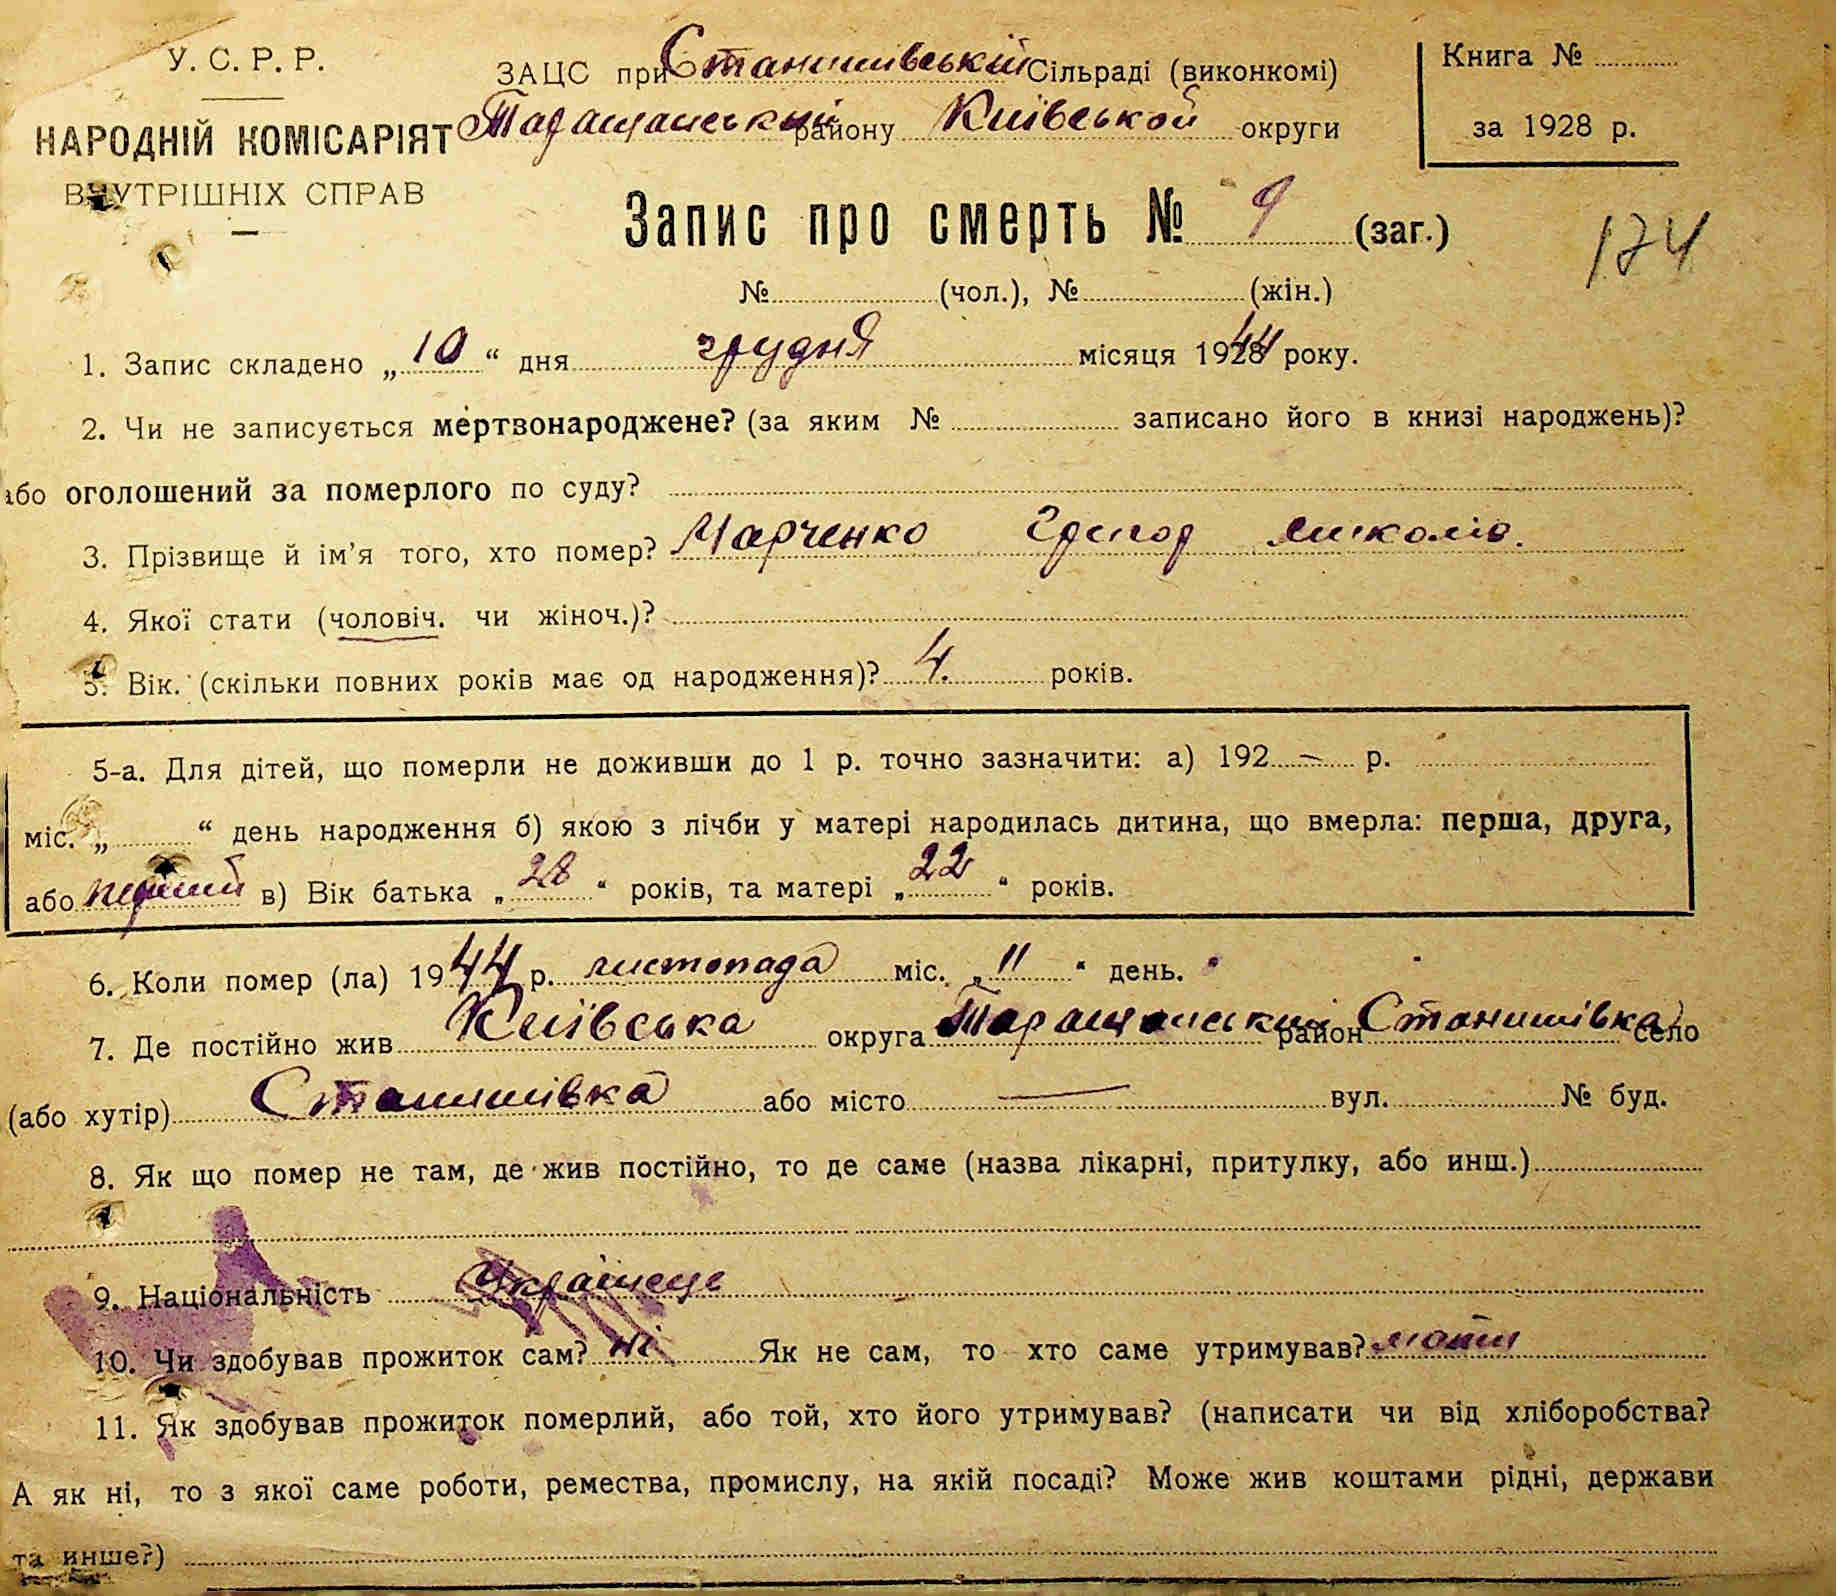 У. С. Р. Р.
НАРОДНІЙ КОМІСАРІЯТ
ВНУТРІШНІХ СПРАВ
ЗАЦС при Станишівській Сільраді (виконкомі)
Таращанський району Київської округи
Книга №
за 1928 р.
Запис про смерть № 9 (заг.)
174
№ (чол.), № (жін.)
1. Запис складено „ 10 “ дня грудня місяця 1928 44 року.
2. Чи не записується мертвонароджене? (за яким № записано його в книзі народжень)?
або оголошений за померлого по суду?
3. Прізвище й ім'я того, хто помер? Марченко Григор Миколів.
4. Якої стати (чоловіч. чи жіноч.)?
5. Вік. (скільки повних років має од народження)? 4. років.
5-а. Для дітей, що померли не доживши до 1 р. точно зазначити: а) 192 — р.
міс. „ “ день народження б) якою з лічби у матері народилась дитина, що вмерла: перша, друга,
або перший в) Вік батька „ 28 “ років, та матері „ 22 “ років.
6. Коли помер (ла) 1944 р. листопада міс. „ 11 “ день.
7. Де постійно жив Київська округа Таращанський район Станишівка село
(або хутір) Станишівка або місто — вул. № буд.
8. Як що помер не там, де жив постійно, то де саме (назва лікарні, притулку, або инш.)
9. Національність Українець
10. Чи здобував прожиток сам? ні Як не сам, то хто саме утримував? мати
11. Як здобував прожиток померлий, або той, хто його утримував? (написати чи від хліборобства?
А як ні, то з якої саме роботи, ремества, промислу, на якій посаді? Може жив коштами рідні, держави
та инше?)